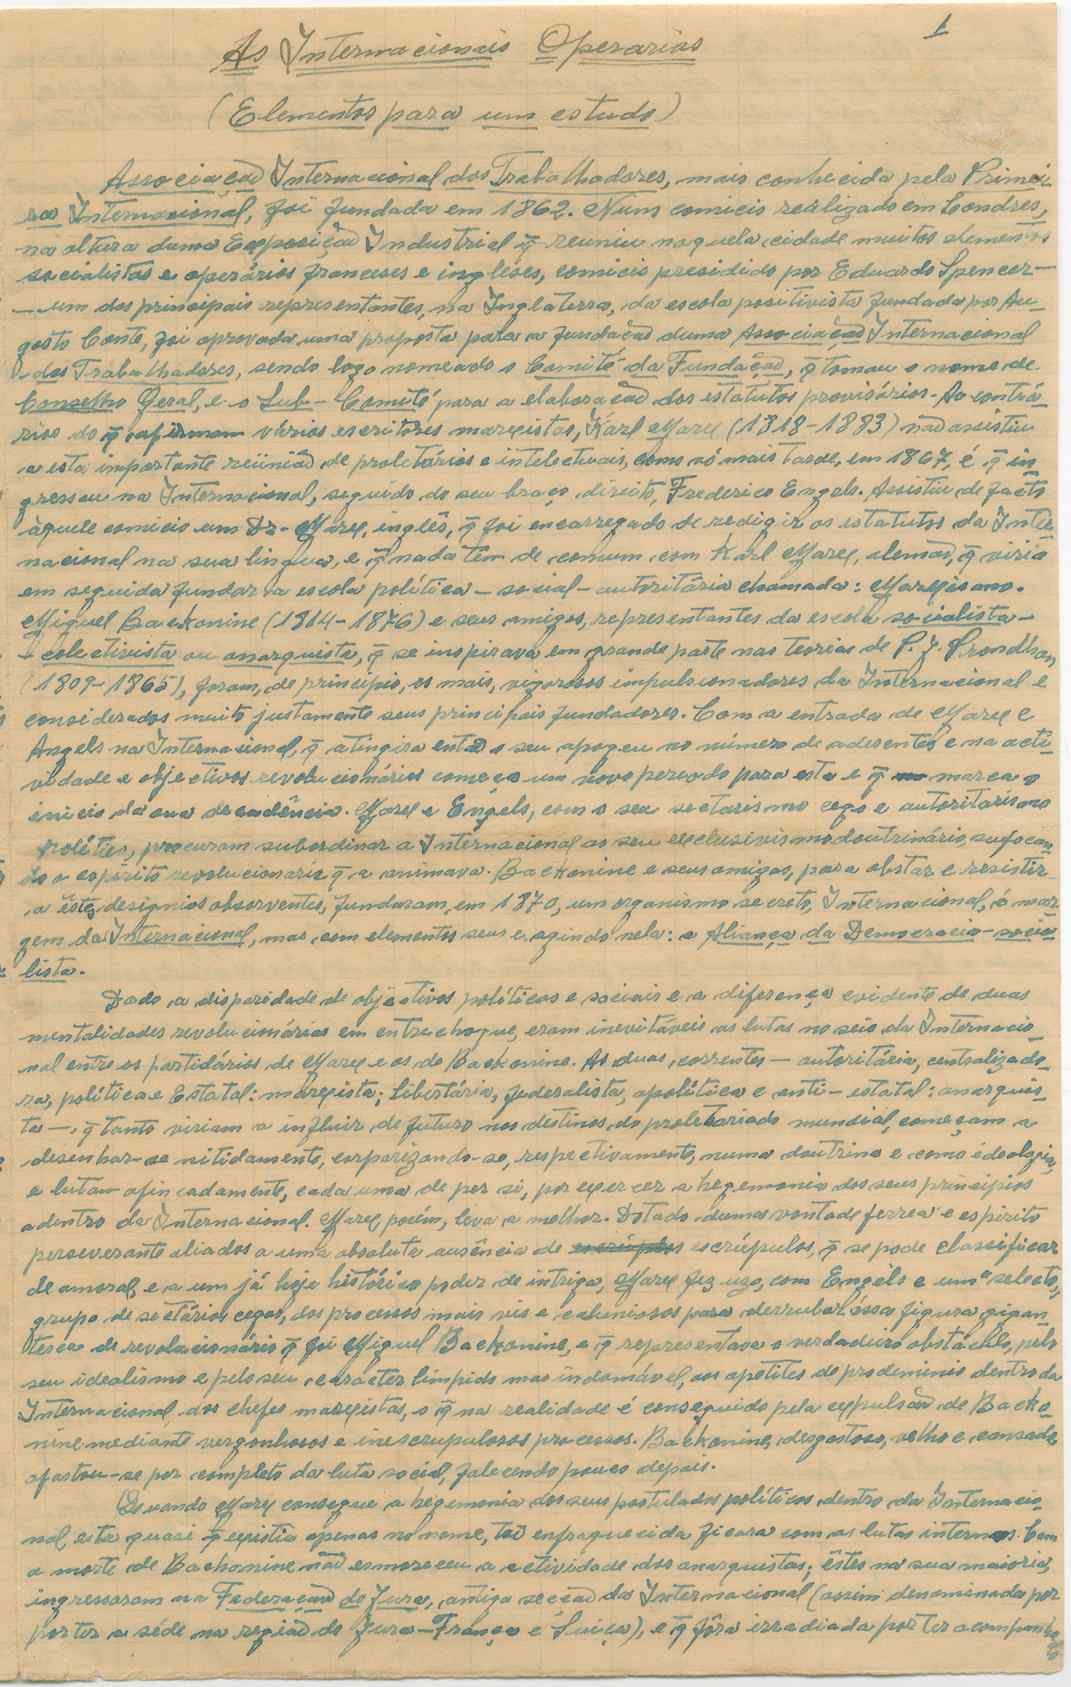 1
As Internacionais Operarias
(Elementos para um estudo)
Associação Internacional dos Trabalhadores, mais conhecida pela Primei-
ra Internacional, foi fundada em 1862. Num comicio realizado em Londres,
na altura duma Exposição Industrial q̃ reuniu naquela cidade muitos elementos
socialistas e operários franceses e inglêses, comicio presidido por Eduardo Spencer—
— um dos principais representantes, na Inglaterra, da escola positivista fundada por Au-
gosto Conte, foi aprovada uma proposta para a fundação duma Associação Internacional
dos Trabalhadores, sendo logo nomeado o Comité da Fundação, q̃ tomou o nome de
Conselho Geral, e o Sub-Comité para a elaboração dos estatutos provisórios. Ao contrá-
rio do q̃ afirmam vários escritores marxistas, Karl Marx (1818-1883) não assistiu
a esta importante reünião de proletários e intelectuais, como só mais tarde, em 1867, é q̃ in-
gressou na Internacional, seguido do seu braço direito, Frederico Engels. Assistiu de facto
àquele comicio um Dr. Marx, inglês, q̃ foi encarregado de redigir os estatutos da Inter-
nacional na sua lingua, e q̃ nada tem de comum com Karl Marx, alemão, q̃ viria
em seguida fundar a escola política-social-autoritária chamada: Marxismo.
Miguel Backonine (1814-1876) e seus amigos, representantes da escola socialista-
-colectivista ou anarquista, q̃ se inspirava em grande parte nas teorias de P. J. Proudhon
(1809-1865), foram, de principio, os mais vigorosos impulsionadores da Internacional e
considerados muito justamente seus principais fundadores. Com a entrada de Marx e
Angels na Internacional, q̃ atingira então o seu apogeu no número de aderentes e na acti-
vidade e objectivos revolucionários começa um novo periodo para esta e q̃ marca o
inicio da sua decadência. Marx e Engels, com o seu sectarismo cego e autoritarismo
politico, procuram subordinar a Internacional ao seu exclusivismo doutrinário, sufocan-
do o espirito revolucionario q̃ a animava. Backonine e seus amigos, para obstar e resistir-
a êstes designios absorventes, fundaram, em 1870, um organismo secreto, Internacional, á mar-
gem da Internacional, mas com elementos seus e agindo nela: a Aliança da Democracia-socia-
lista.
Dado a disparidade de objectivos políticos e sociais e a diferença evidente de duas
mentalidades revolucionárias em entrechoque, eram inevitáveis as lutas no seio da Internacio-
nal entre os partidários de Marx e os de Backonine. As duas correntes — autoritária, centralizado-
ra, política e Estatal: marxista; libertária, federalista, apolítica e anti-estatal: anarquis-
ta —, q̃ tanto viriam a influir de futuro nos destinos do proletariado mundial, começam a
desenhar-se nitidamente, corporizando-se, respectivamente, numa doutrina e como ideologia,
e lutam afincadamente, cada uma de per si, por exercer a hegemonia dos seus principios
adentro da Internacional. Marx porém, leva a melhor. Dotado duma vontade ferrea e espirito
perseverante aliados a uma absoluta ausência de escrúpulos, q̃ se pode classificar
de amoral, e a um já hoje histórico poder de intriga, Marx fez uzo, com Engels e um selecto,
grupo de sectários cegos, dos processos mais vis e caluniosos para derrubar essa figura gigan-
tesca de revolucionário q̃ foi Miguel Backonine, e q̃ representava o verdadeiro obstáculo, pelo
seu idealismo e pelo seu carácter limpido mas indomável, aos apetites de predominio dentro da
Internacional dos chefes marxistas, o q̃ na realidade é conseguido pela expulsão de Backo-
nine mediante vergonhosos e inescrupulosos processos. Backonine, desgostoso, velho e cansado
afastou-se por completo da luta social, falecendo pouco depois.
Quando Marx consegue a hegemonia dos seus postulados politicos dentro da Internacio-
nal esta quasi q̃ existia apenas no nome, tal enfraquecida ficara com as lutas internas. Com
a morte de Backonine não esmoreceu a actividade dos anarquistas; êstes na sua maioria,
ingressaram na Federação do Jura, antiga secção da Internacional (assim denominada por
por ter a séde na região do Jura-França e Suiça), e q̃ fôra irradiada por ter acompanha-
do